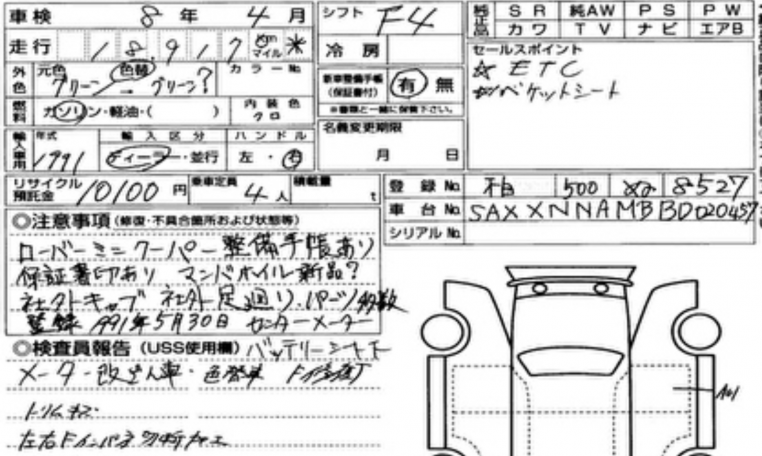 車検 8年 4月
シフト F4
純正品 SR 純AW PS PW
カワ TV ナビ エアB
走行 18,917 Km マイル ※
冷房
外色 元色 グリーン → 色替 グリーン? カラーNo.
新車整備手帳(保証書付) 有 無
※書類と一緒に保管下さい。
セールスポイント
☆ETC
☆バケットシート
燃料 ガソリン・軽油・( ) 内装色 クロ
名義変更期限
月 日
輸入車用 年式 1991 輸入区分 ディーラー・並行 ハンドル 左・右
リサイクル預託金 10100円 乗車定員 4人 積載量 t
登録No. 500 8527
車台No. SAXXNNAMBBD020457
シリアルNo.
◎注意事項(修復・不具合箇所および状態等)
ローバーミニクーパー 整備手帳あり
保証書印あり マンドホイル新品?
社外キャブ 社外足廻り.パーツ多数
登録1991年5月30日 センターメーター
◎検査員報告(USS使用欄) バッテリーシート下
メーター改ざん車・色替車
トリムキズ
左右Fインパネ切断加工
A1